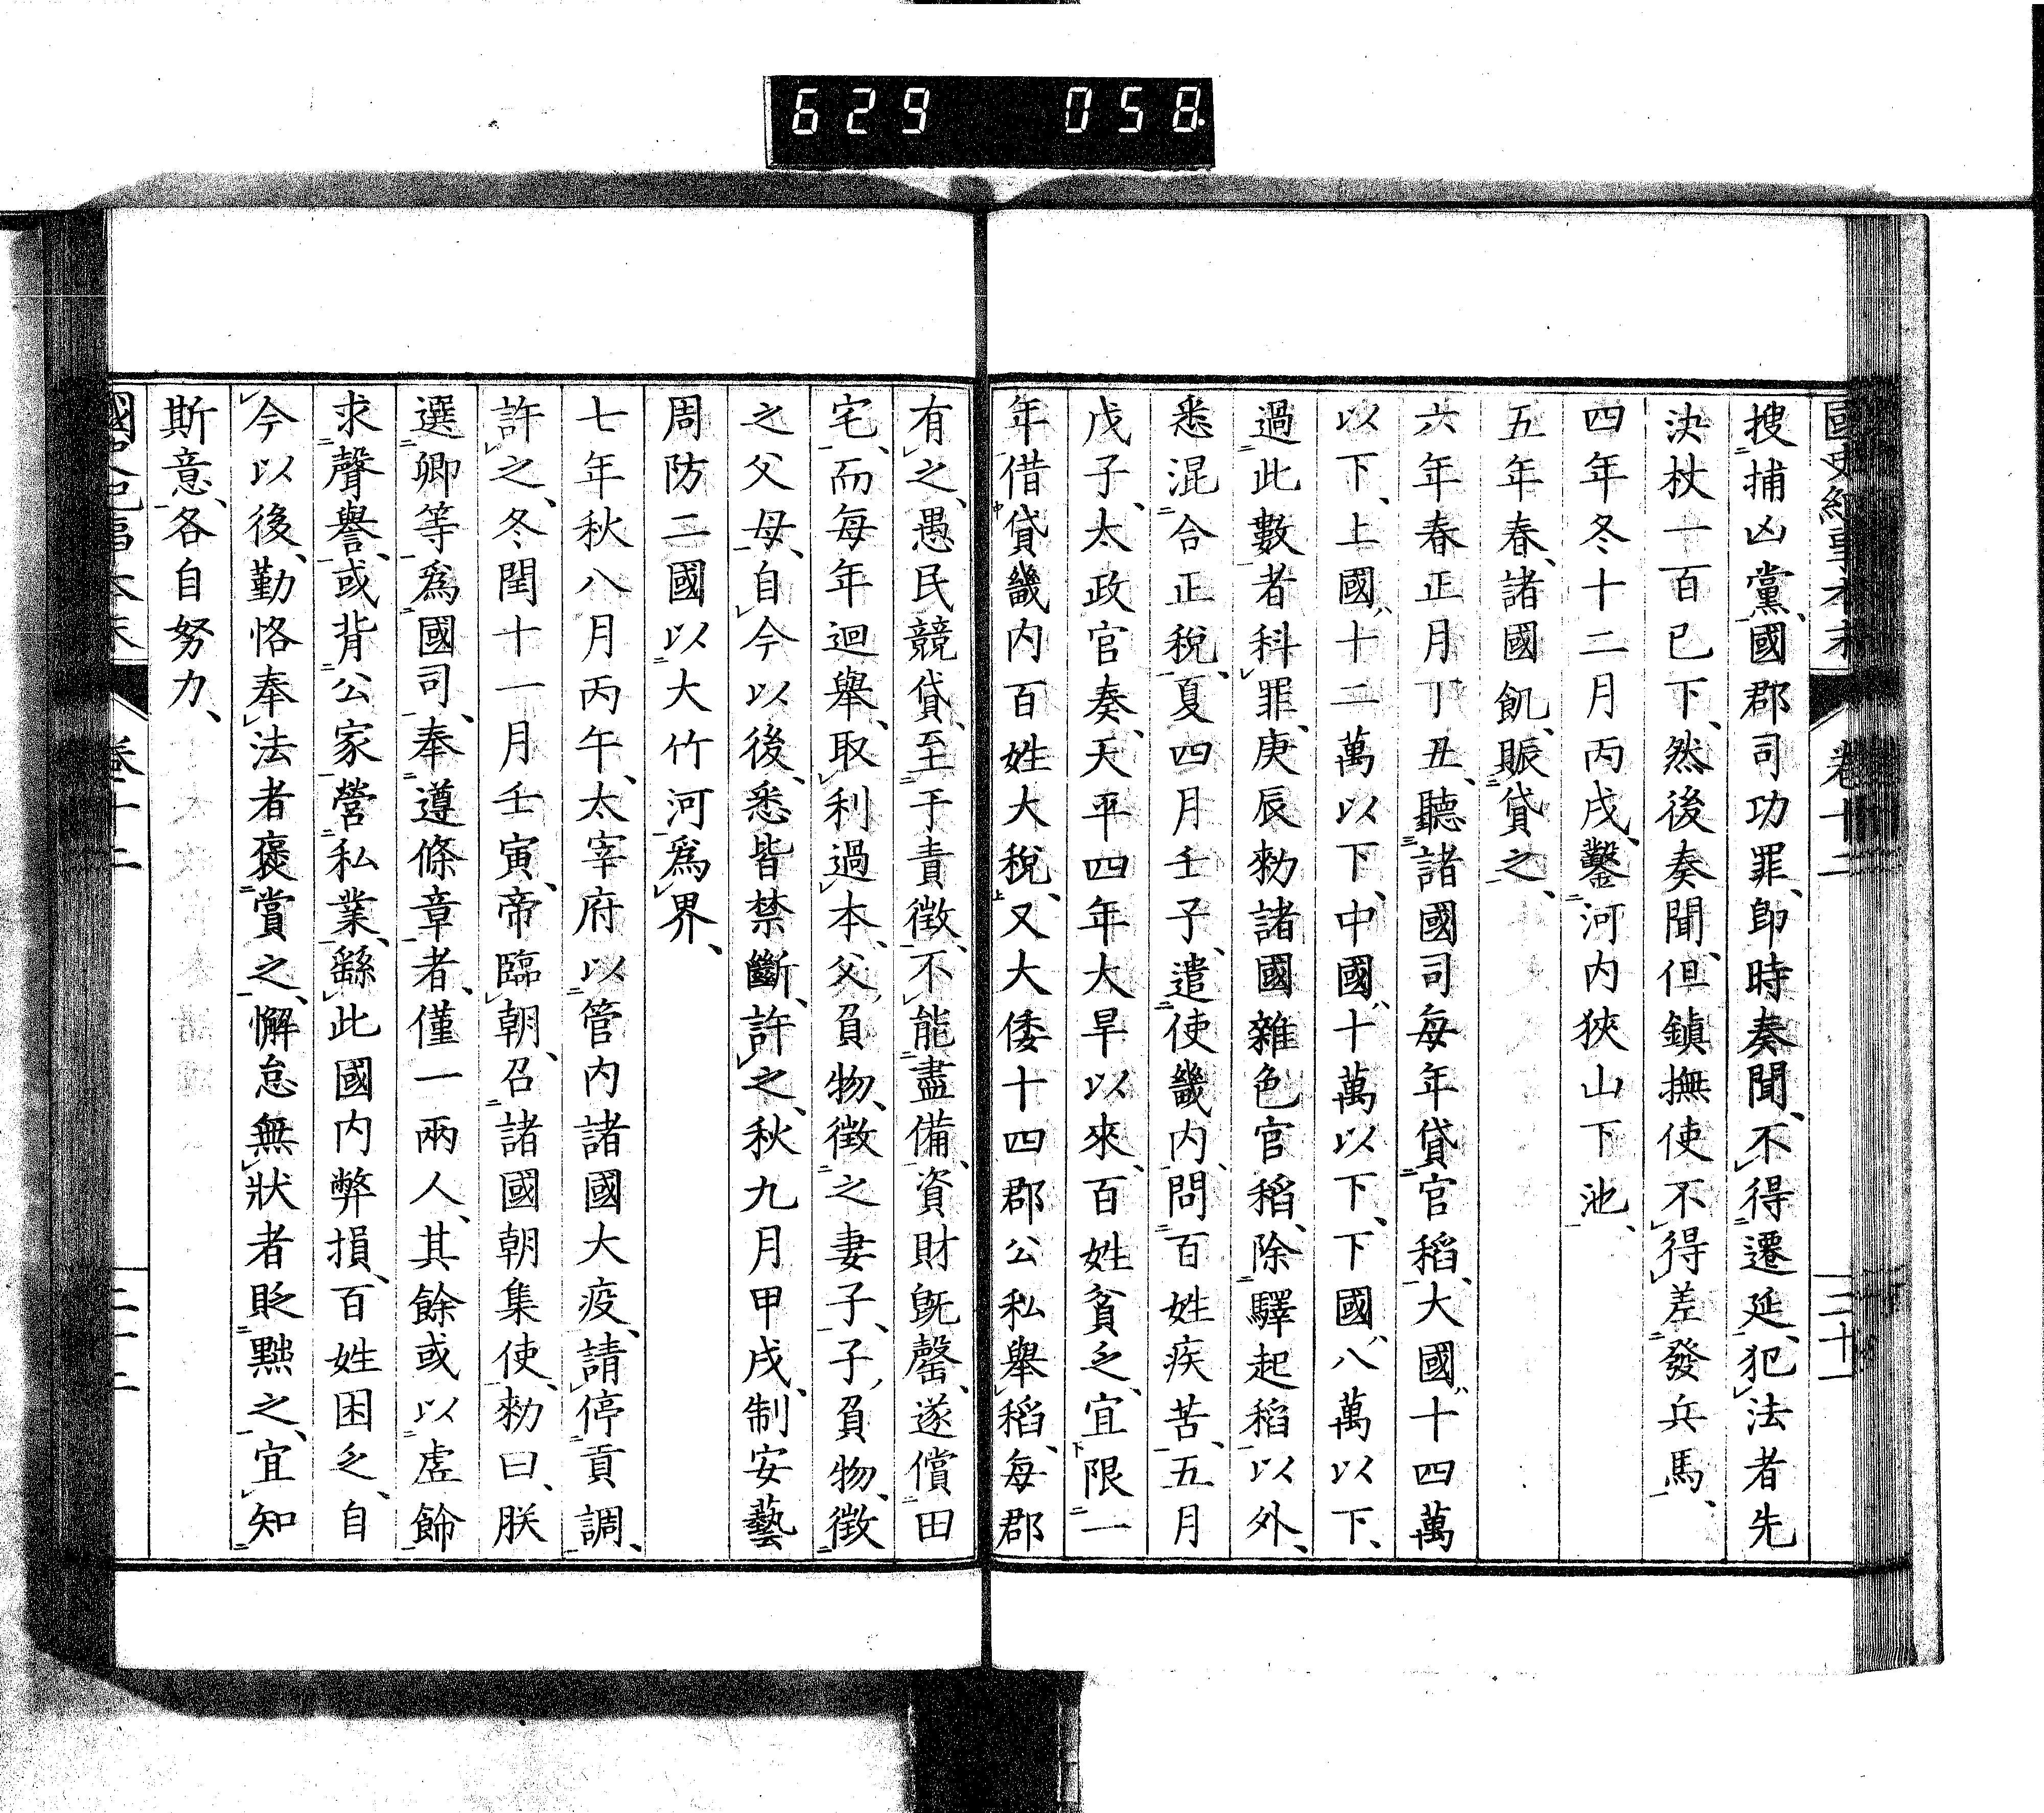 629 058
國史紀事本末 卷十二 三十一
搜捕凶黨、國郡司功罪、即時奏聞、不得遷延、犯法者先
決杖一百已下、然後奏聞、但鎮撫使不得差發兵馬、
四年冬十二月丙戌、鑿河内狹山下池、
五年春、諸國飢、賑貸之、
六年春正月丁丑、聽諸國司每年貸官稻、大國十四萬
以下、上國十二萬以下、中國十萬以下、下國八萬以下、
過此數者科罪、庚辰勅諸國雜色官稻、除驛起稻以外、
悉混合正稅、夏四月壬子、遣使畿内、問百姓疾苦、五月
戊子、太政官奏、天平四年大旱以來、百姓貧乏、宜限一
年借貸畿内百姓大稅、又大倭十四郡公私舉稻、每郡
有之、愚民競貸、至于責徵、不能盡備、資財既罄、遂償田
宅、而每年迴舉、取利過本、父負物、徵之妻子、子負物、徵
之父母、自今以後、悉皆禁斷、許之、秋九月甲戌、制安藝
周防二國以大竹河爲界、
七年秋八月丙午、太宰府以管内諸國大疫、請停貢調、
許之、冬閏十一月壬寅、帝臨朝、召諸國朝集使、勅曰、朕
選卿等爲國司、奉遵條章者、僅一兩人、其餘或以虛飾
求聲譽、或背公家營私業、繇此國内弊損、百姓困乏、自
今以後、勤恪奉法者褒賞之、懈怠無狀者貶黜之、宜知
斯意、各自努力、
卷十二